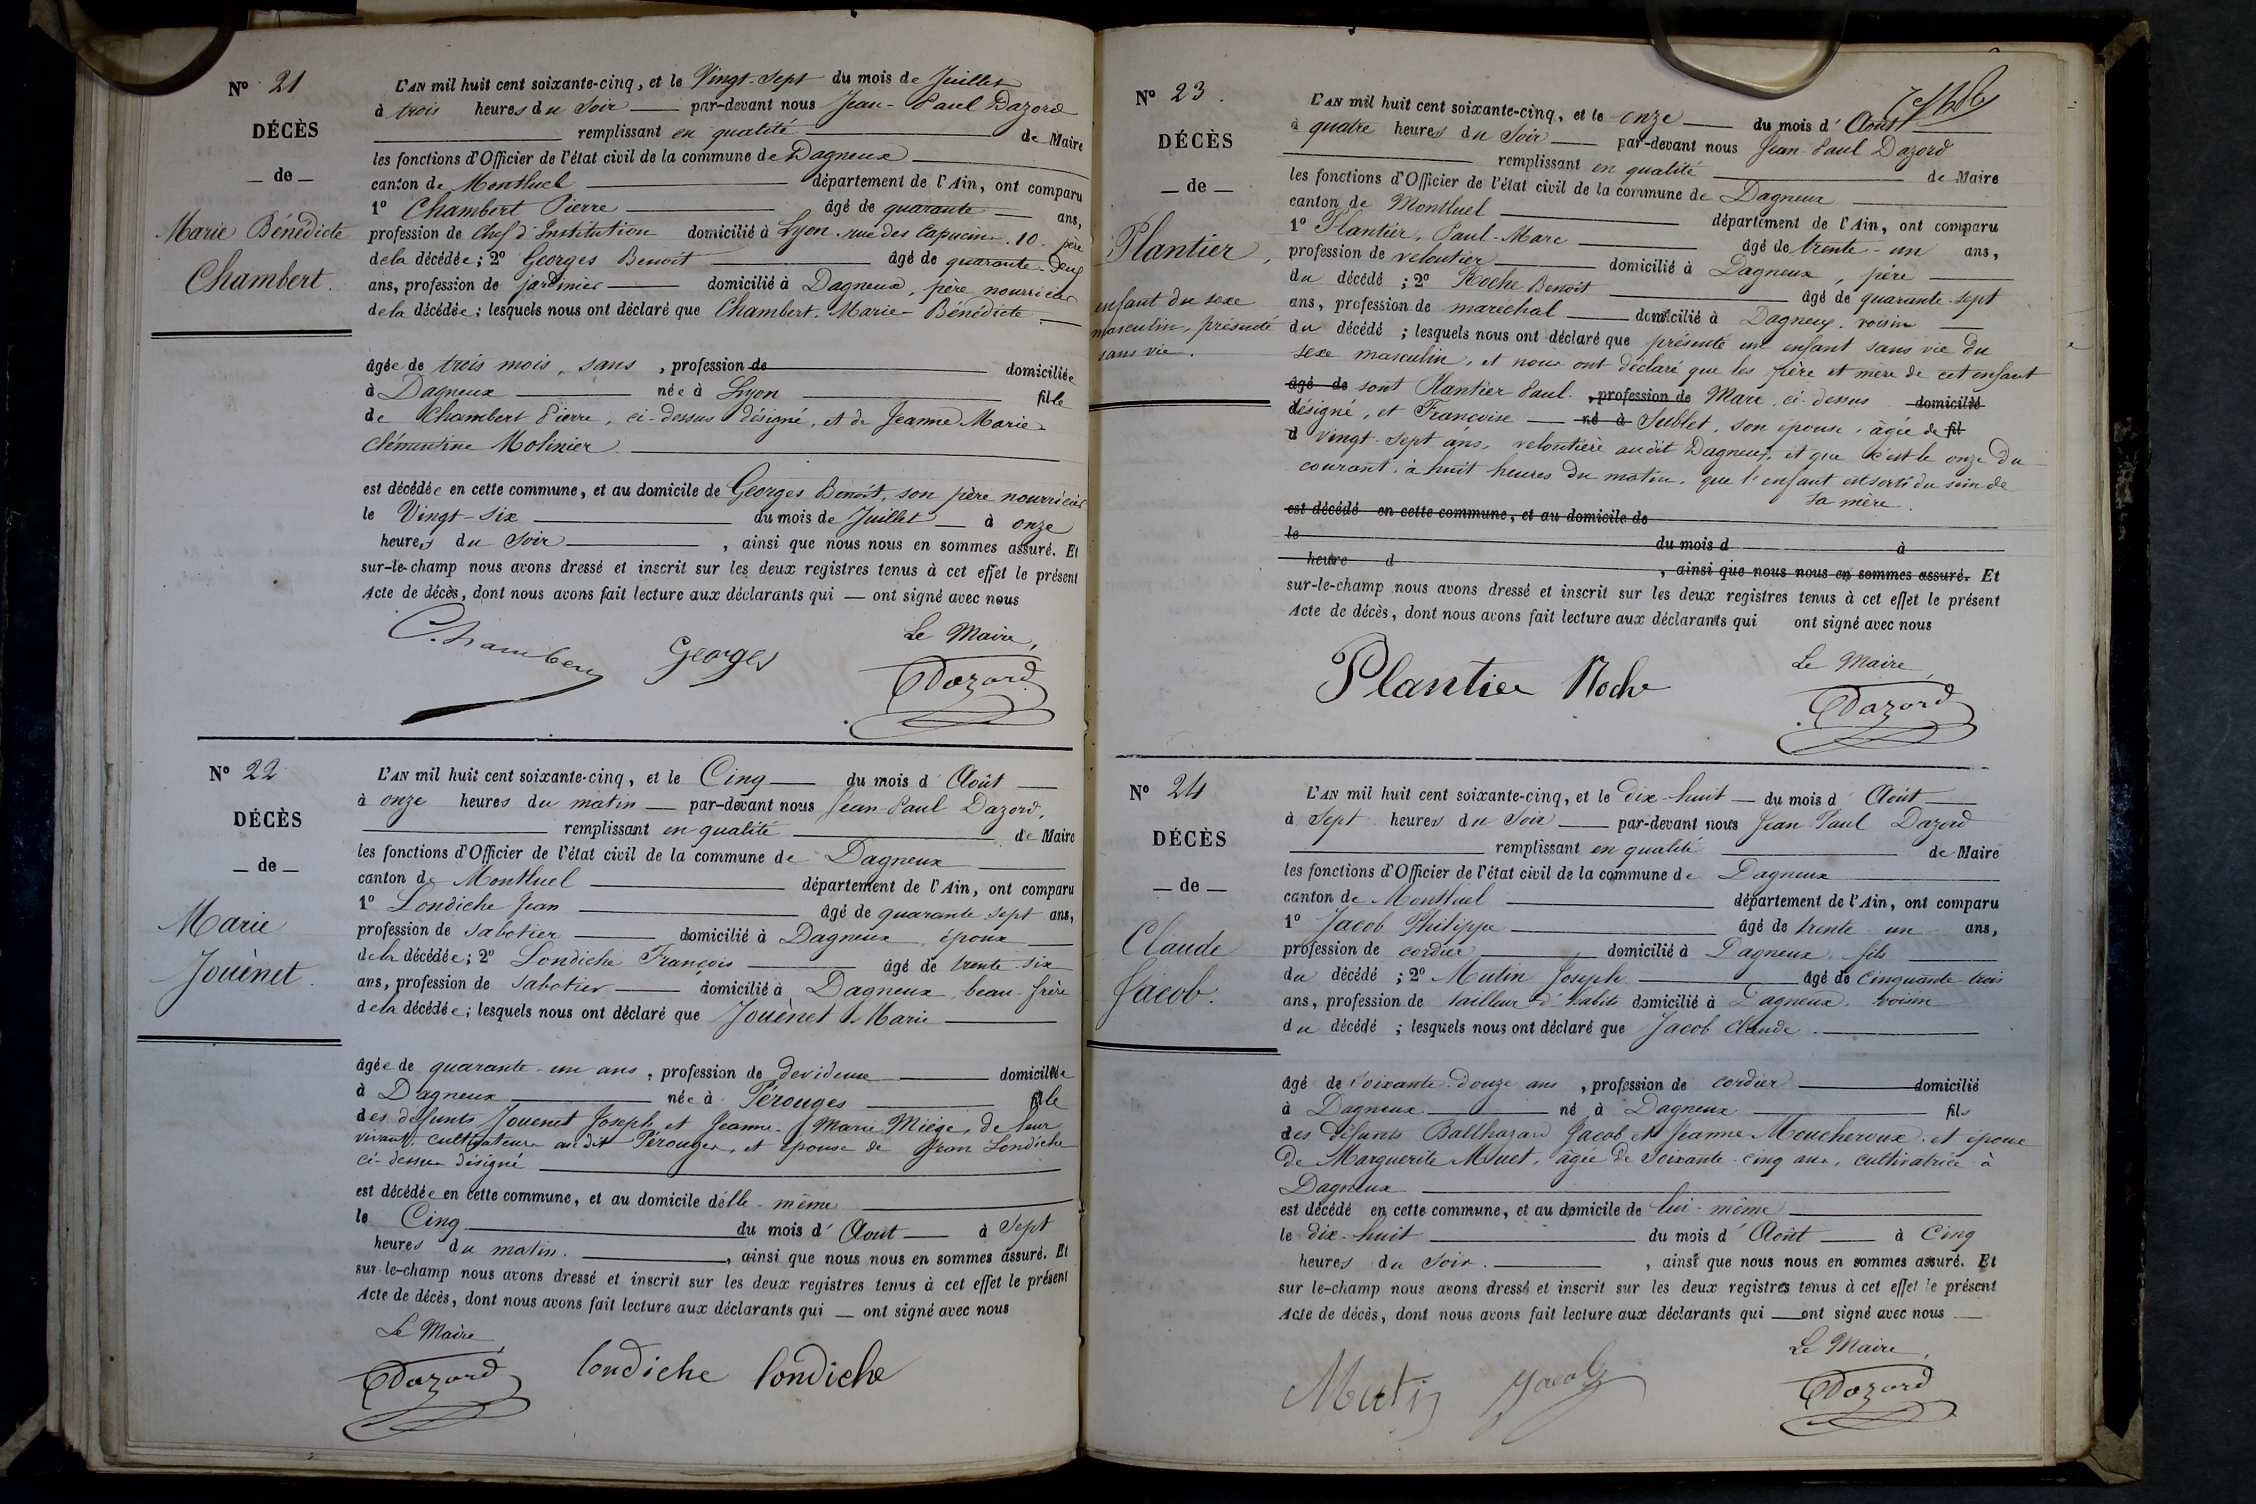 N° 21
DÉCÈS
de
Marie Bénédicte
Chambert.
L'AN mil huit cent soixante-cinq, et le Vingt-Sept du mois de Juillet
à trois heures du Soir par-devant nous Jean-Paul Dazord
remplissant en qualité de Maire
les fonctions d'Officier de l'état civil de la commune de Dagneux
canton de Montluel département de l'Ain, ont comparu
1° Chambert Pierre âgé de quarante ans,
profession de Chef d'Institution domicilié à Lyon, rue des Capucins. 10. père
de la décédée; 2° Georges Benoît âgé de quarante-deux
ans, profession de jardinier domicilié à Dagneux, père nourricier
de la décédée; lesquels nous ont déclaré que Chambert, Marie-Bénédicte
âgée de trois mois, sans, profession de domiciliée
à Dagneux née à Lyon fille
de Chambert Pierre, ci-dessus désigné, et de Jeanne Marie
Clémentine Molinier
est décédée en cette commune, et au domicile de Georges Benoît, son père nourricier
le Vingt-six du mois de Juillet à onze
heures du Soir, ainsi que nous nous en sommes assuré. Et
sur-le-champ nous avons dressé et inscrit sur les deux registres tenus à cet effet le présent
Acte de décès, dont nous avons fait lecture aux déclarants qui ont signé avec nous
Le Maire,
Chambert Georges Dazord
N° 22
DÉCÈS
de
Marie
Jouènet.
L'AN mil huit cent soixante-cinq, et le Cinq du mois d'Août
à onze heures du matin par-devant nous Jean-Paul Dazord,
remplissant en qualité de Maire
les fonctions d'Officier de l'état civil de la commune de Dagneux
canton de Montluel département de l'Ain, ont comparu
1° Londiche Jean âgé de quarante sept ans,
profession de Sabotier domicilié à Dagneux, époux
de la décédée; 2° Londiche François âgé de trente six
ans, profession de Sabotier domicilié à Dagneux, beau-frère
de la décédée; lesquels nous ont déclaré que Jouènet Marie
âgée de quarante-un ans, profession de devideuse domiciliée
à Dagneux née à Pérouges fille
des défunts Jouenet Joseph et Jeanne-Marie Miège, de leur
vivant, cultivateurs audit Pérouges, et épouse de Jean Londiche
ci-dessus désigné
est décédée en cette commune, et au domicile d'elle-même
le Cinq du mois d'Août à Sept
heures du matin, ainsi que nous nous en sommes assuré. Et
sur-le-champ nous avons dressé et inscrit sur les deux registres tenus à cet effet le présent
Acte de décès, dont nous avons fait lecture aux déclarants qui ont signé avec nous
Le Maire
Dazord londiche londiche
N° 23.
DÉCÈS
de
Plantier,
enfant du sexe
masculin, présenté
sans vie.
L'AN mil huit cent soixante-cinq, et le onze du mois d'Août
à quatre heures du Soir par-devant nous Jean-Paul Dazord
remplissant en qualité de Maire
les fonctions d'Officier de l'état civil de la commune de Dagneux
canton de Montluel département de l'Ain, ont comparu
1° Plantier, Paul-Marc âgé de trente-un ans,
profession de veloutier domicilié à Dagneux, père
du décédé; 2° Roche Benoît âgé de quarante-sept
ans, profession de maréchal domicilié à Dagneux, voisin
du décédé; lesquels nous ont déclaré que présenté un enfant sans vie du
sexe masculin, et nous ont déclaré que les père et mère de cet enfant
âgé de sont Plantier Paul, profession de Marc, ci-dessus domicilié
désigné, et Françoise né à Sublet, son épouse, âgée de fil
d vingt-sept ans, veloutière audit Dagneux, et que c'est le onze du
courant, à huit heures du matin, que l'enfant est sorti du sein de
sa mère.
est décédé en cette commune, et au domicile de
le du mois d à
heure d, ainsi que nous nous en sommes assuré. Et
sur-le-champ nous avons dressé et inscrit sur les deux registres tenus à cet effet le présent
Acte de décès, dont nous avons fait lecture aux déclarants qui ont signé avec nous
Le Maire
Plantier Roche Dazord
N° 24
DÉCÈS
de
Claude
Jacob.
L'AN mil huit cent soixante-cinq, et le Dix-huit du mois d'Août
à Sept heures du Soir par-devant nous Jean Paul Dazord
remplissant en qualité de Maire
les fonctions d'Officier de l'état civil de la commune de Dagneux
canton de Montluel département de l'Ain, ont comparu
1° Jacob Philippe âgé de trente-un ans,
profession de cordier domicilié à Dagneux, fils
du décédé; 2° Mutin Joseph âgé de cinquante trois
ans, profession de tailleur d'habits domicilié à Dagneux, voisin
du décédé; lesquels nous ont déclaré que Jacob Claude
âgé de Soixante-Douze ans, profession de cordier domicilié
à Dagneux né à Dagneux fils
des défunts Balthazard Jacob et Jeanne Moucheroux, et époux
de Marguerite Muet, âgée de Soixante-cinq ans, cultivatrice à
Dagneux
est décédé en cette commune, et au domicile de lui-même
le dix-huit du mois d'Août à Cinq
heures du Soir, ainsi que nous nous en sommes assuré. Et
sur le-champ nous avons dressé et inscrit sur les deux registres tenus à cet effet le présent
Acte de décès, dont nous avons fait lecture aux déclarants qui ont signé avec nous
Le Maire,
Mutin Jacob Dazord